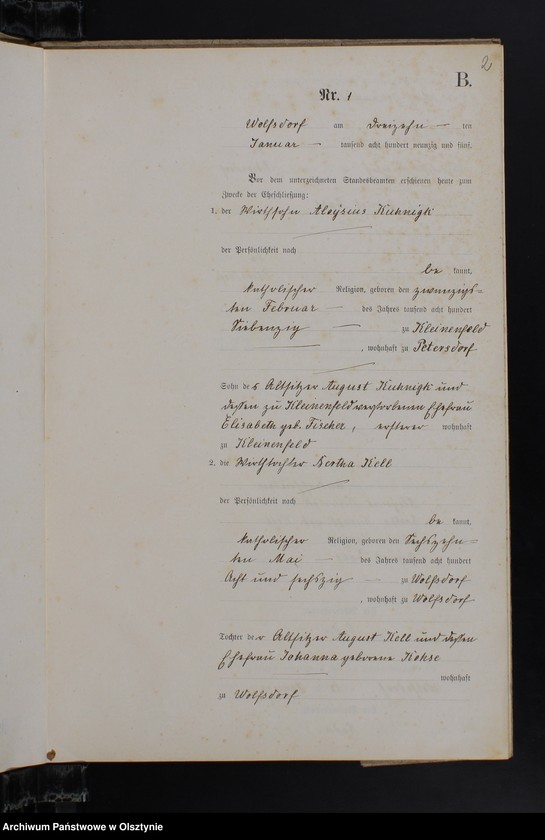 2
B.
Nr. 1
Wolfsdorf am Dreizehn ten
Januar tausend acht hundert neunzig und fünf.
Vor dem unterzeichneten Standesbeamten erschienen heute zum
Zwecke der Eheschließung:
1. der Wirthsohn Aloysius Kuhnigk
der Persönlichkeit nach
be kannt,
katholischer Religion, geboren den zwanzigs=
ten Februar des Jahres tausend acht hundert
Siebenzig zu Kleinenfeld
, wohnhaft zu Petersdorf
Sohn des Altsitzer August Kuhnigk und
dessen zu Kleinenfeld verstorbenen Ehefrau
Elisabeth geb. Fischer, ersterer wohnhaft
zu Kleinenfeld
2. die Wirthtochter Bertha Kell
der Persönlichkeit nach
be kannt,
katholischer Religion, geboren den Sechszehn=
ten Mai des Jahres tausend acht hundert
Acht und sechszig zu Wolfsdorf
, wohnhaft zu Wolfsdorf
Tochter der Altsitzer August Kell und dessen
Ehefrau Johanna geborene
wohnhaft
zu Wolfsdorf
Archiwum Państwowe w Olsztynie